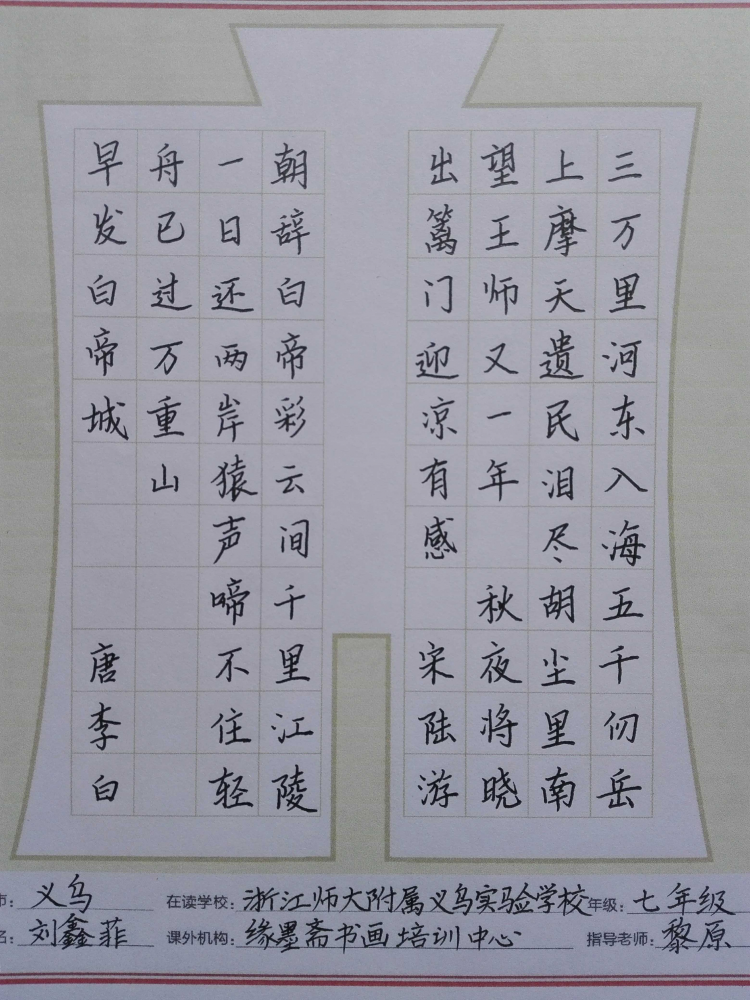 三万里河东入海五千仞岳
上摩天遗民泪尽胡尘里南
望王师又一年 秋夜将晓
出篱门迎凉有感 宋陆游
朝辞白帝彩云间千里江陵
一日还两岸猿声啼不住轻
舟已过万重山
早发白帝城 唐李白
市: 义乌 在读学校: 浙江师大附属义乌实验学校 年级: 七年级
名: 刘鑫菲 课外机构: 缘墨斋书画培训中心 指导老师: 黎原